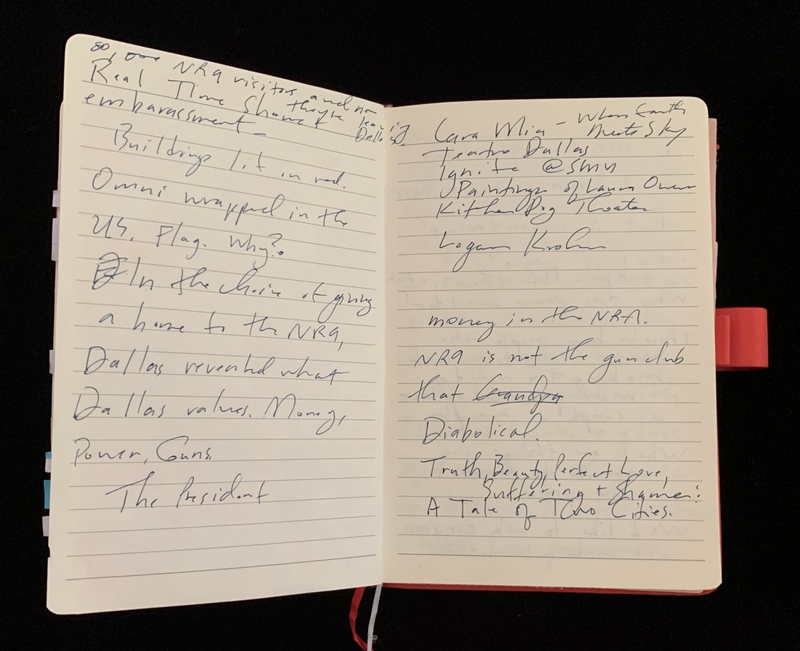 80,000 NRA visitors and now
they're leaving
Dallas
Real Time Shame &
embarassment —
Buildings lit in red.
Omni wrapped in the
US. Flag. Why?
In the choice of giving
a home to the NRA,
Dallas revealed what
Dallas values. Money,
Power, Guns.
The President
Cara Mia - Where Earth
Meets Sky
Teatro Dallas
Ignite @SMU
Paintings of Laura Owens
Kitchen Dog Theater
Logan
money in the NRA.
NRA is not the gun club
that Grandpa
Diabolical.
Truth, Beauty, Perfect Love,
Suffering + Shame:
A Tale of Two Cities.